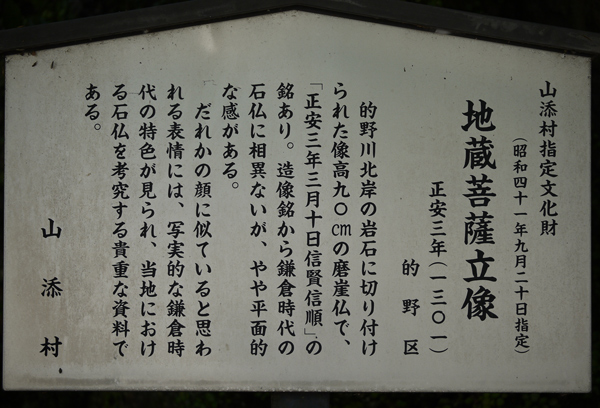 山添村指定文化財
(昭和四十一年九月二十日指定)
地蔵菩薩立像
正安三年(一三〇一)
的野区
的野川北岸の岩石に切り付け
られた像高九〇cmの磨崖仏で、
「正安三年三月十日信賢信順」の
銘あり。造像銘から鎌倉時代の
石仏に相異ないが、やや平面的
な感がある。
だれかの顔に似ていると思わ
れる表情には、写実的な鎌倉時
代の特色が見られ、当地におけ
る石仏を考究する貴重な資料で
ある。
山添村